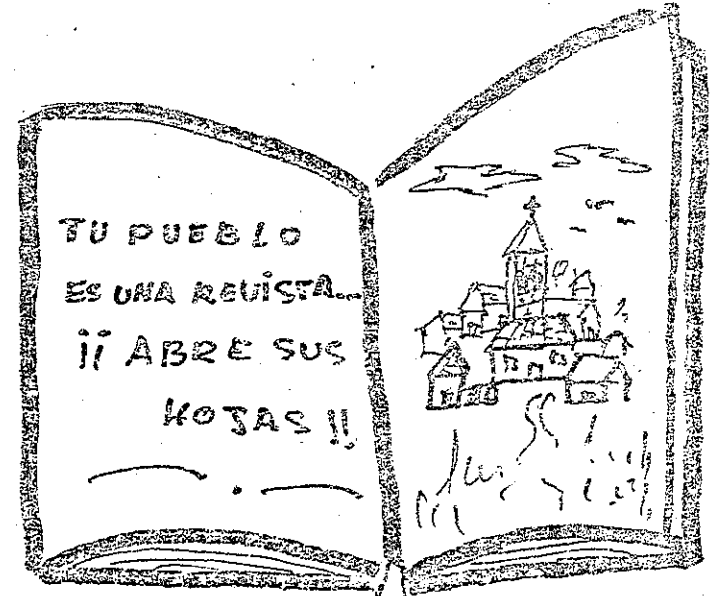 TU PUEBLO
ES UNA REVISTA...
¡¡ ABRE SUS
HOJAS !!